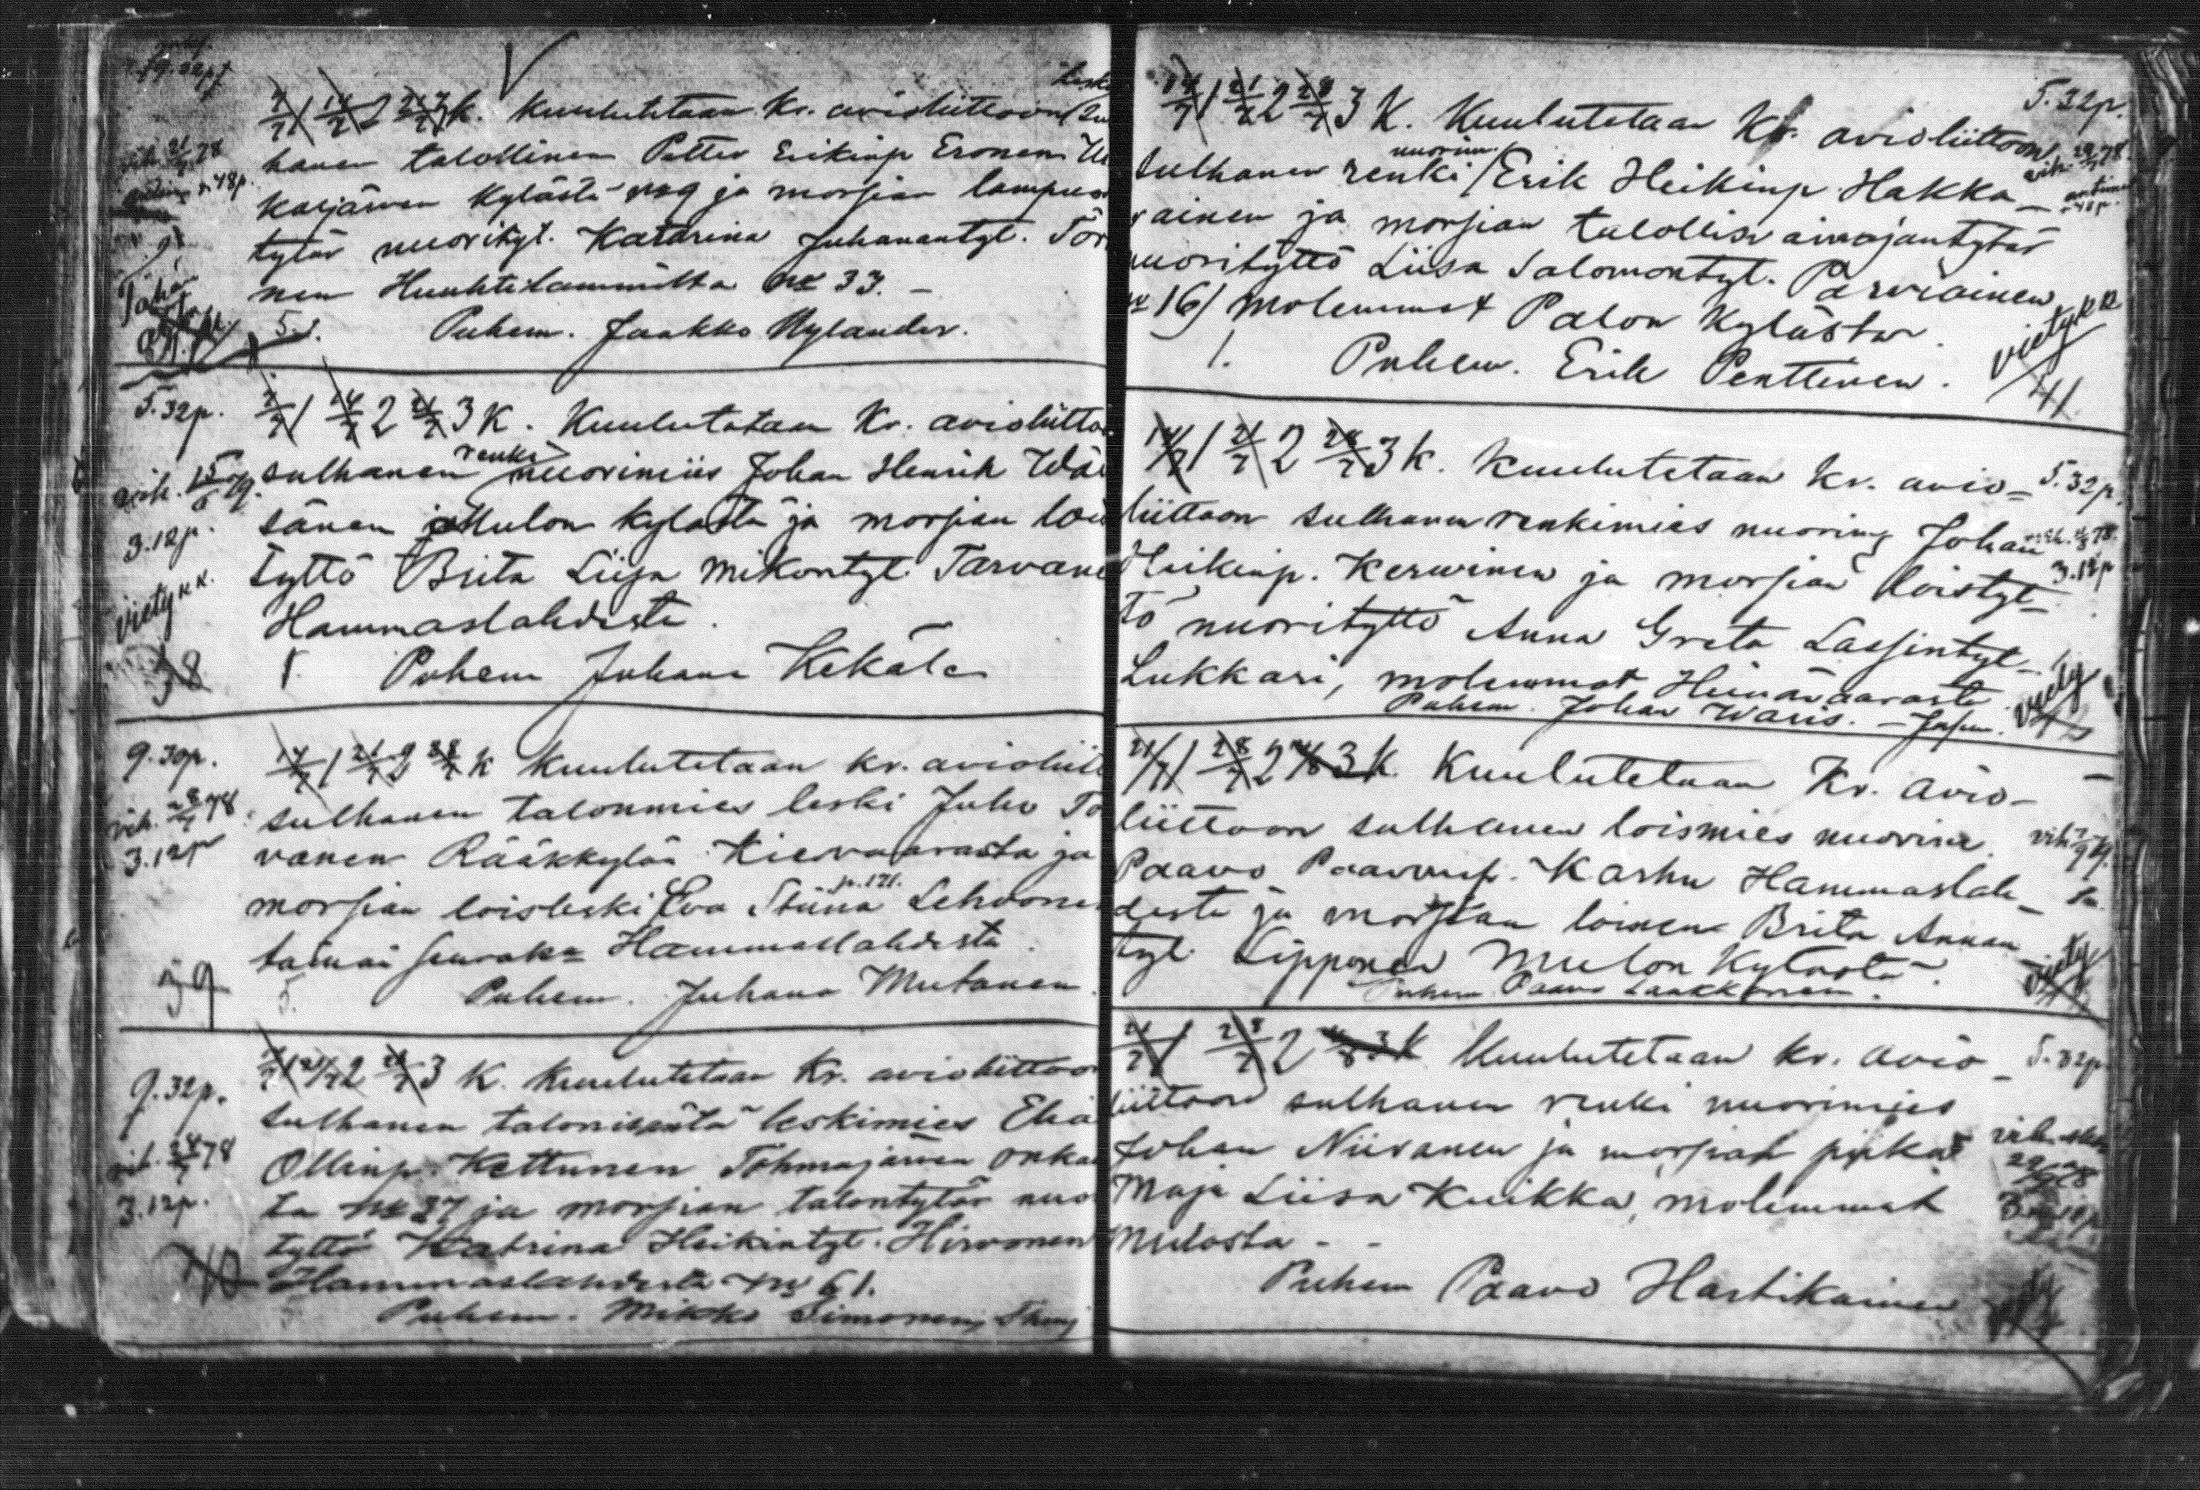 7/7 1 14/7 2 21/7 3 K. Kuulutetaan Kr. avioliittoon
hanen talollinen Petter Erikinp Eronen
karjärven kylästä ja morsian lampuo
tytär nuorityt. Katarina Juhanantyt. Tör
nen Huuhtilammilta No 33. –
5. Puhem. Jaakko Nylander.
5.32p. 7/7 1 14/7 2 21/7 3 K. Kuulutetaan Kr. avioliitto
renki
sulhanen nuorimies Johan Henrik Wäi
vih. 15/6 79.
sänen Mulon kylästä ja morsian loi
3.12p.
tyttö Brita Liisa Mikontyt. Tarvane
viety KK.
Hammaslahdesta.
38 1. Puhem Juhana Kekäle
9.30p. 14/7 1 21/7 2 28/7 K Kuulutetaan kr. avioliit
vih. 28/7 78
sulhanen talonmies leski Juho To
3.12p
vanen Rääkkylän Kiesvaarasta ja
p. 121.
morsian loisleski Eva Stiina Lehvone
tämän seurak= Hammaslahdesta.
39 5. Puhem. Juhana Mutanen.
9.32p. 14/7 1 21/7 2 28/7 3 K. Kuulutetaan Kr. avioliittoo
sulhanen talonisäntä leskimies Elia
vih. 28/7 78
Ollinp. Kettunen Tohmajärven Onka
3.12p.
ta No 37 ja morsian talontytär nuo
tyttö Katrina Heikintyt. Hirvonen
Hammaslahdesta No 61.
Puhem. Mikko Simonen,
14/7 1 21/7 2 28/7 3 K. Kuulutetaan Kr. avioliittoon
5.32p.
nuorim.
sulhanen renki / Erik Heikinp Hakka-
vainen ja morsian talollisen tytär
nuorityttö Liisa Salomontyt. Parviainen
No 16) molemmat Palon Kylästä.
viety KK
1. Puhem. Erik Penttinen.
41
14/7 1 21/7 2 28/7 3 K. Kuulutetaan Kr. avio=
5.32p.
liittoon sulhanen renkimies nuorim Johan
Heikinp. Kerwinen ja morsian loistyt=
3.12p
tö nuorityttö Anna Greta Lassintyt=
Lukkari, molemmat Heinävaarasta.
viety
Puhem. Johan Waris.
21/7 1 28/7 2 4/8 3 K. Kuulutetaan Kr. avio-
liittoon sulhanen loismies nuorim.
Paavo Paavonp. Karhu Hammaslah-
desta ja morsian loinen Brita Annan
tyt. Lipponen Mulon Kylästä.
viety
Puhem Paavo Laakkonen.
21/7 1 28/7 2 4/8 3 K Kuulutetaan kr. avio-
5.32p
liittoon sulhanen renki nuorimies
Johan Niiranen ja morsian piika
Maja Liisa Kuikka, molemmat
Mulosta - -
Puhem Paavo Hartikainen